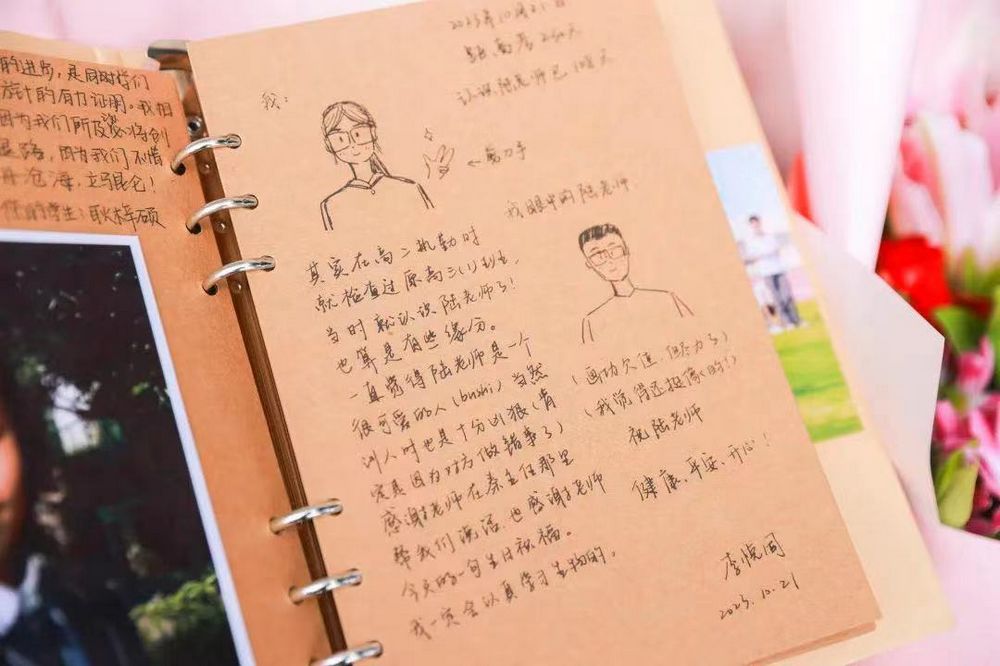 的进步，是同时你们
旅计的有力证明。我相
因为我们所及必将创
是路，因为我们不惜
沧海，立马昆仑！
您的学生：耿梓硕
2023年10月21日
距高考 230天
认识陆老师已 天
我：
←剪刀手
我眼中的陆老师.
其实在高二执勤时
就检查过原高三(1)班,
当时就认识陆老师了!
也算是有些缘分。
一直觉得陆老师是一个
很可爱的人(bushi) 当然
训人时也是十分凶狠(肯
定是因为对方做错事了)
感谢老师在秦主任那里
帮我们说话,也感谢老师
今天的一句生日祝福。
我一定会认真学习生物的。
(画功欠佳,但尽力了)
(我觉得还挺像的!)
祝陆老师
健康、平安、开心!
李悦同
2023.10.21